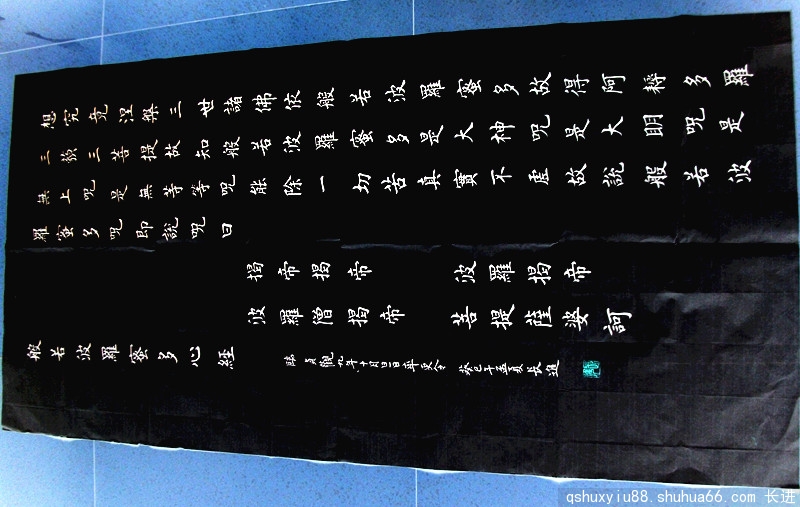 想究竟涅槃三世諸佛依般若波羅蜜多故得阿耨多羅
三藐三菩提故知般若波羅蜜多是大神咒是大明咒是
無上咒是無等等咒能除一切苦真實不虛故說般若波
羅蜜多咒即說咒曰
揭帝揭帝 波羅揭帝
波羅僧揭帝 菩提薩婆訶
般若波羅蜜多心經
臨貞觀九年十月旦日率更令 癸巳年孟夏長進
qshuxyiu88.shuhua66.com 长进